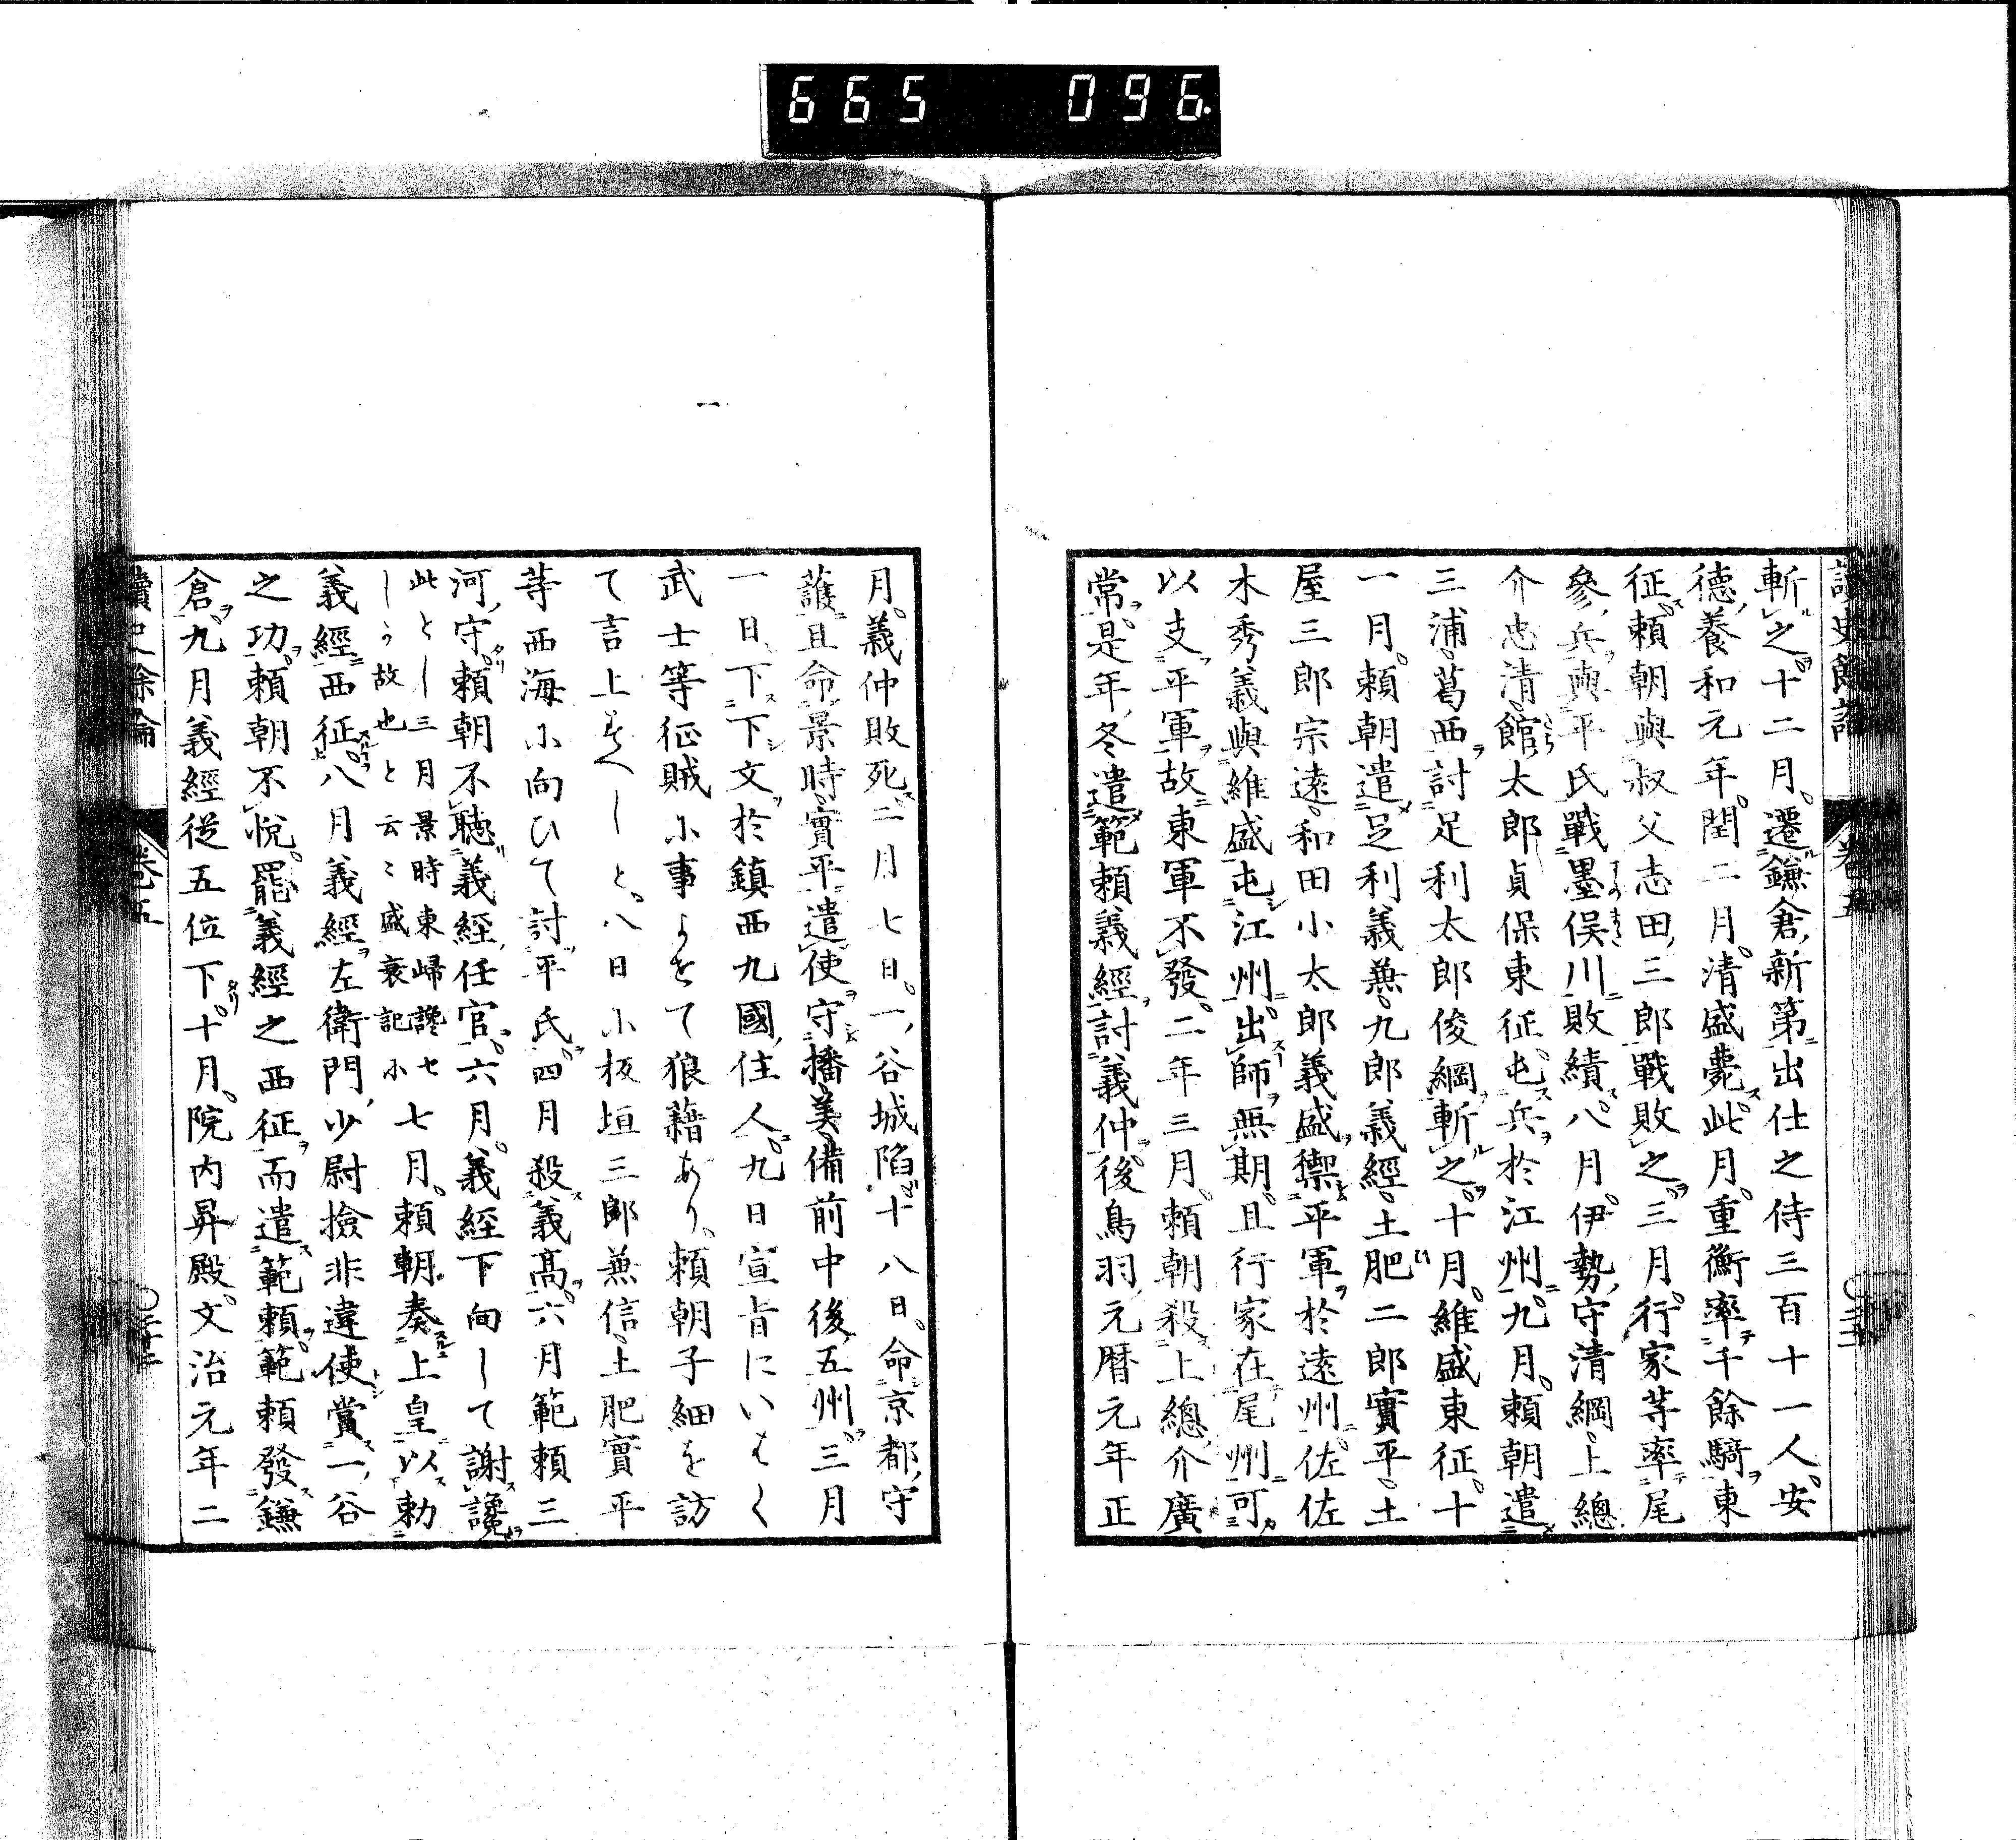 665 096.
斬之十二月遷鎌倉新第出仕之侍三百十一人安
德養和元年閏二月清盛薨此月重衡率千餘騎東
征賴朝與叔父志田三郎戰敗之三月行家等率尾
參兵與平氏戰墨俣川敗績八月伊勢守清綱上總
介忠清館太郎貞保東征屯兵於江州九月賴朝遣
三浦葛西討足利太郎俊綱斬之十月維盛東征十
一月賴朝遣足利義兼九郎義經土肥二郎實平土
屋三郎宗遠和田小太郎義盛禦平軍於遠州佐佐
木秀義與維盛屯江州出師無期且行家在尾州可
以支平軍故東軍不發二年三月賴朝殺上總介廣
常是年冬遣範賴義經討義仲後鳥羽元曆元年正
月義仲敗死二月七日一谷城陷十八日命京都守
護且命景時實平遣使守播美備前中後五州三月
一日下下文於鎮西九國住人九日宣旨にいはく
武士等征賊小事よせて狼藉あり賴朝子細を訪
て言上すへしと八日小板垣三郎兼信土肥實平
等西海小向ひて討平氏四月殺義高六月範賴三
河守賴朝不聽義經任官六月義經下向して謝讒
此とし三月景時東歸讒せ
しか故也と云々盛衰記小
七月賴朝奏上皇以勅
義經西征八月義經左衛門少尉撿非違使賞一谷
之功賴朝不悅罷義經之西征而遣範賴範賴發鎌
倉九月義經從五位下十月院內昇殿文治元年二
讀史餘論 卷五